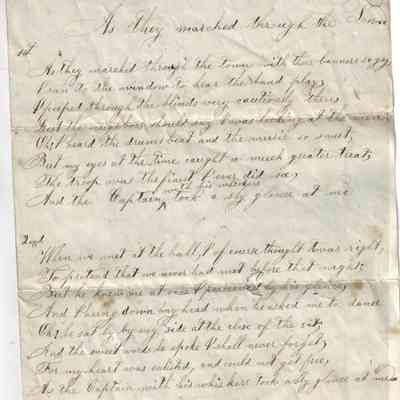 As they marched through the Town
1st
As they marched through the town with their banners so gay
I ran to the window to hear the band play
I peeped through the blinds very cautiously then
Lest the neighbors should say I was looking at the men
Oh I heard the drums beat and the music so sweet,
But my eyes at the time caught a much greater treat,
The troop was the finest I ever did see,
And the Captain with his whiskers took a sly glance at me
2nd
When we met at the ball, I of course thought twas right,
To pretend that we never had met before that night;
But he knew me at once I perceived by his glance,
And I hung down my head when he asked me to dance
Oh he sat by my side at the close of the set,
And the sweet words he spoke I shall never forget,
For my heart was enlisted, and could not get free,
As the Captain with his whiskers took a sly glance at me